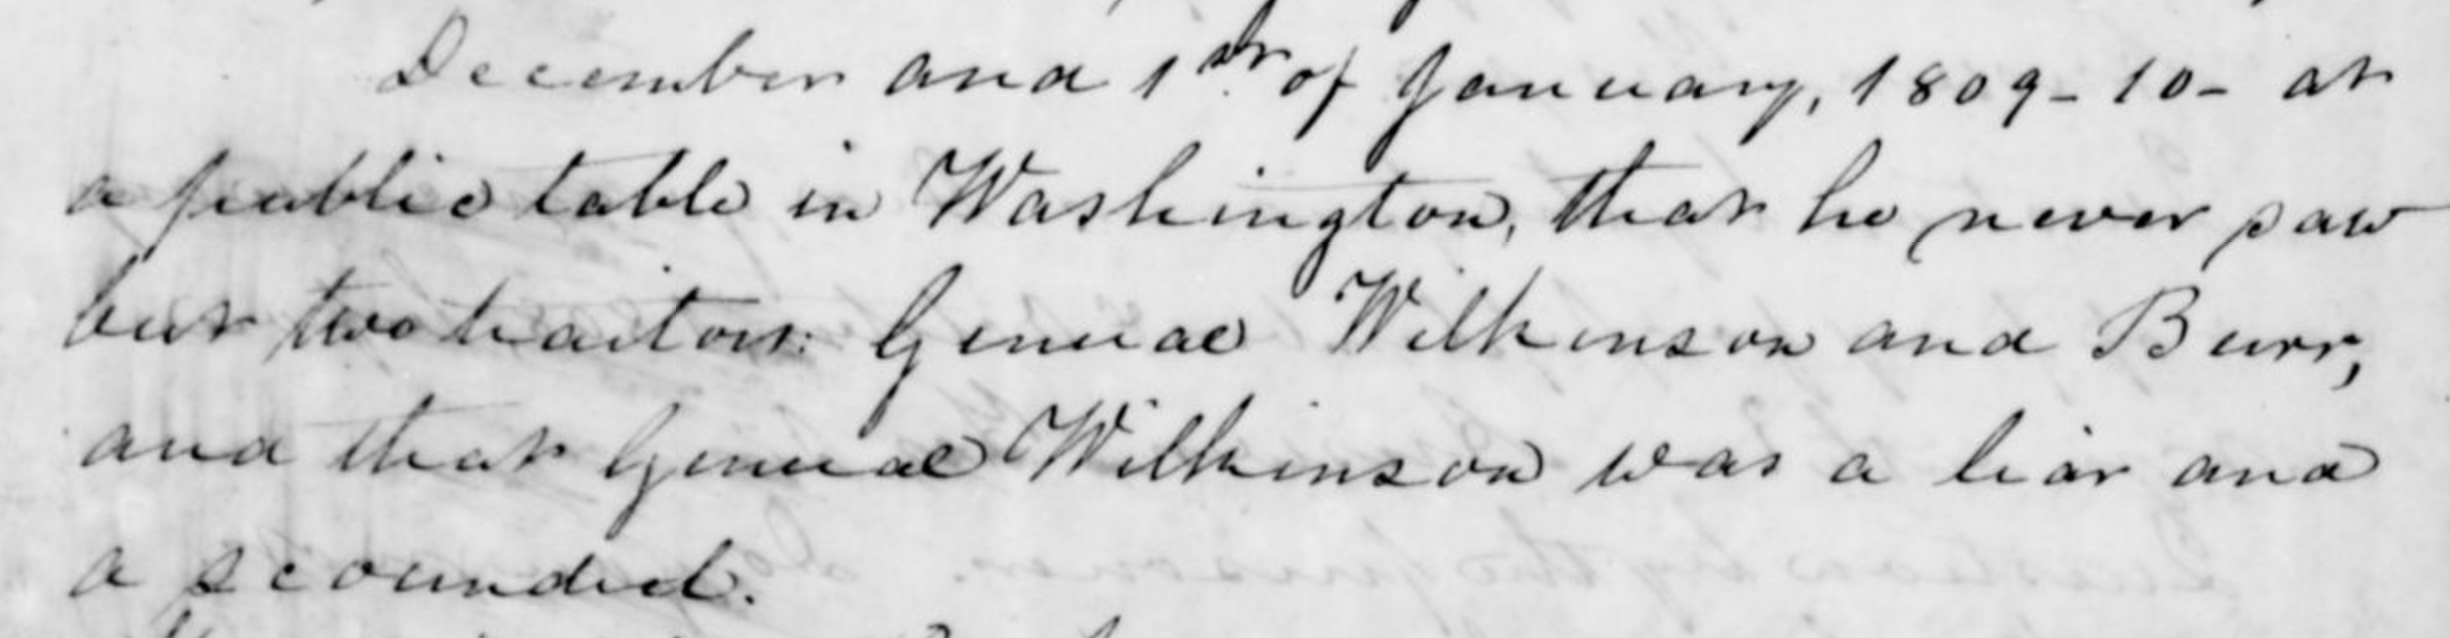 December and 1st. of January, 1809-10- at
a public table in Washington, that he never saw
but two traitors: General Wilkinson and Burr,
and that General Wilkinson was a liar and
a scoundrel.